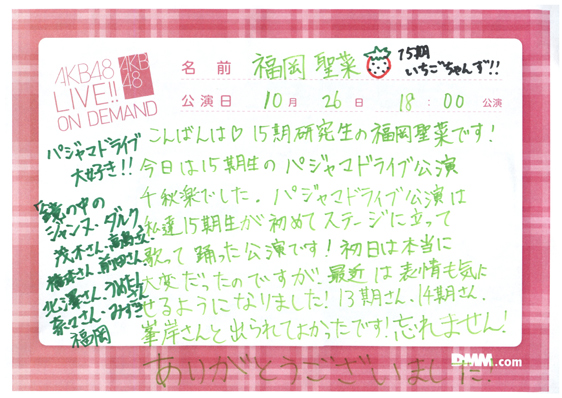 AKB48
LIVE!!
ON DEMAND
AKB
48
名前 福岡 聖菜 15期
いちごちゃんず!!
公演日 10月 26日 18:00 公演
こんばんは♡15期研究生の福岡聖菜です!
今日は15期生のパジャマドライブ公演
千秋楽でした。パジャマドライブ公演は
私達15期生が初めてステージに立って
歌って踊った公演です!初日は本当に
大変だったのですが、最近は表情も気に
せるようになりました!13期さん、14期さん、
峯岸さんと出られてよかったです!忘れません!
ありがとうございました。
パジャマドライブ
大好き!!
「鏡の中の
ジャンヌ・ダルク
茂木さん・高島さん
橋本さん・前田さん
北澤さん・
奈々さん・みずき
福岡
DMM.com